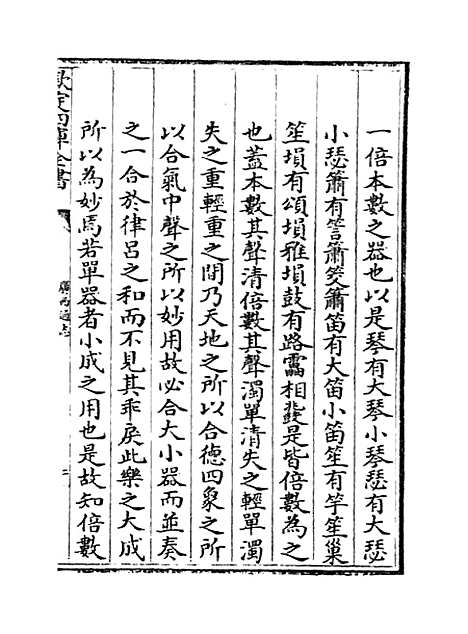 一倍本數之器也以是琴有大琴小琴瑟有大瑟
小瑟簫有䇾簫筊簫笛有大笛小笛笙有竽笙巢
笙塤有頌塤雅塤鼓有路鼗相鼗是皆倍數為之
也蓋本數其聲清倍數其聲濁單清失之輕單濁
失之重輕重之間乃天地之所以合德四象之所
以合氣中聲之所以妙用故必合大小器而並奏
之一合於律吕之和而不見其乖戾此樂之大成
所以為妙焉若單器者小成之用也是故知倍數
欽定四庫全書
廣西通志